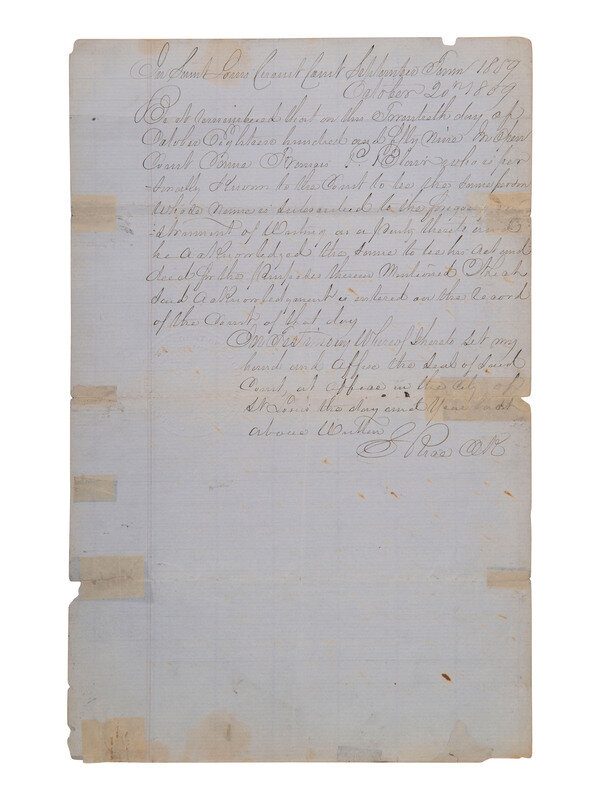 In Saint Louis Circuit Court September Term 1859
October 20th 1859
Be it remembered that on this Twentieth day of
October Eighteen hundred and fifty Nine in Open
Court Came Francis P Blair who is per
sonally Known to the Court to be the same person
Whose Name is Subscribed to the foregoing in
strument of Writing as a party thereto and
he acknowledged the same to be his act and
deed for the Purposes therein Mentioned Which
said acknowledgment is entered on the Record
of the Court of that day
In Testimony Whereof I hereto Set my
hand and affix the Seal of said
Court at office in the City of
St Louis the day and Year last
above Written